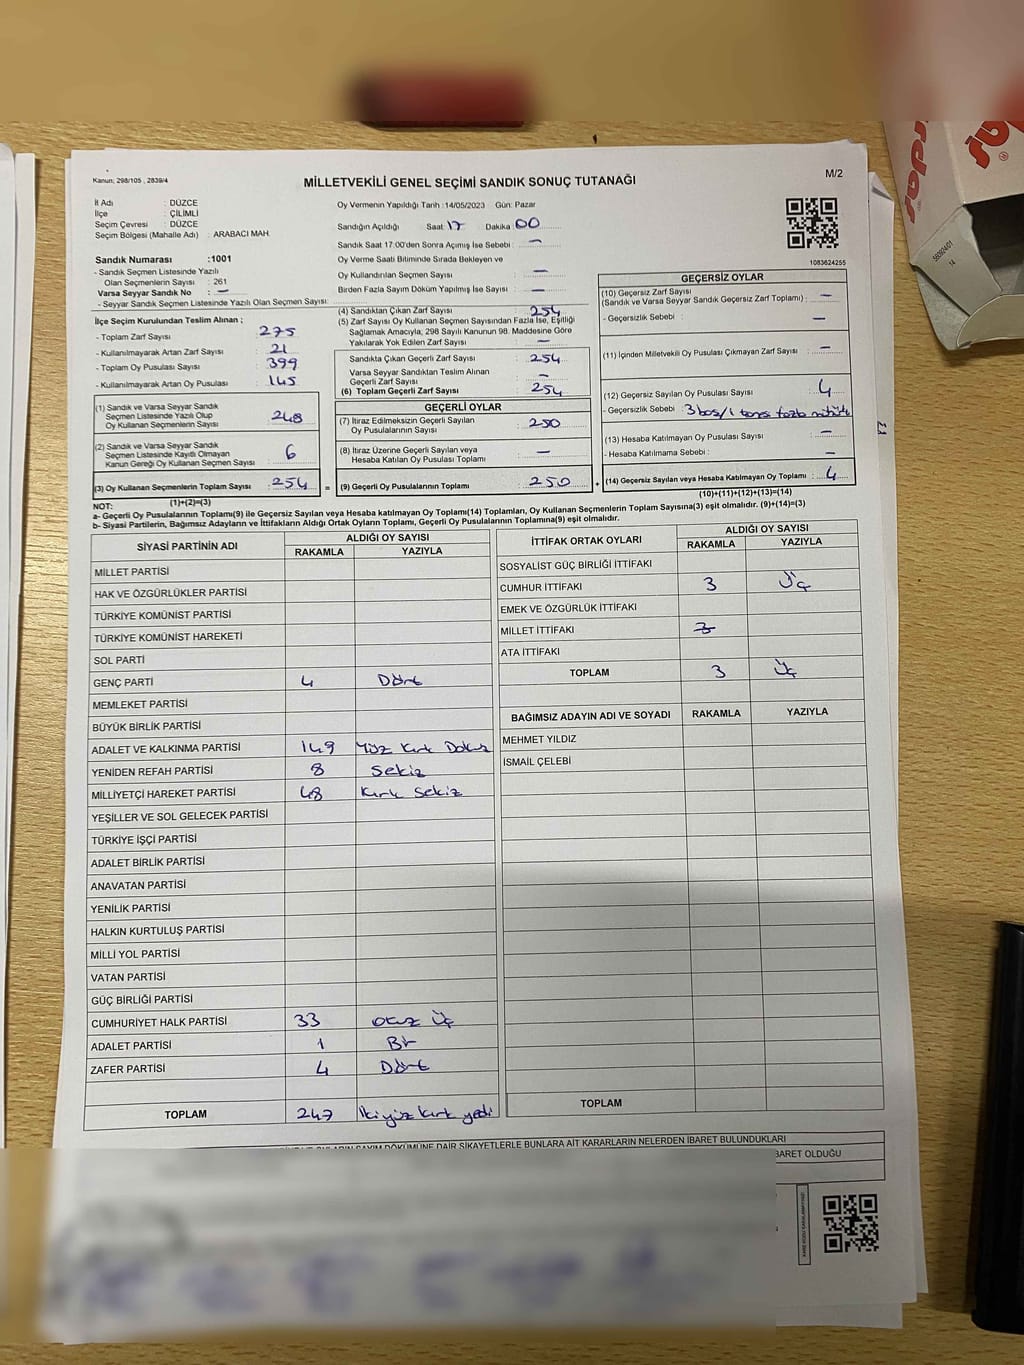 Kanun; 298/105 , 2839/4
MİLLETVEKİLİ GENEL SEÇİMİ SANDIK SONUÇ TUTANAĞI
M/2
İl Adı : DÜZCE
İlçe : ÇİLİMLİ
Seçim Çevresi : DÜZCE
Seçim Bölgesi (Mahalle Adı) : ARABACI MAH.
Sandık Numarası :1001
- Sandık Seçmen Listesinde Yazılı
Olan Seçmenlerin Sayısı : 261
Varsa Seyyar Sandık No : —
- Seyyar Sandık Seçmen Listesinde Yazılı Olan Seçmen Sayısı:
Oy Vermenin Yapıldığı Tarih :14/05/2023 Gün: Pazar
Sandığın Açıldığı Saat 17 Dakika 00
Sandık Saat 17.00'den Sonra Açımış İse Sebebi : —
Oy Verme Saati Bitiminde Sırada Bekleyen ve
Oy Kullandırılan Seçmen Sayısı : —
Birden Fazla Sayım Döküm Yapılmış İse Sayısı : —
1083624255
İlçe Seçim Kurulundan Teslim Alınan ;
- Toplam Zarf Sayısı : 275
- Kullanılmayarak Artan Zarf Sayısı : 21
- Toplam Oy Pusulası Sayısı : 399
- Kullanılmayarak Artan Oy Pusulası : 145
(1) Sandık ve Varsa Seyyar Sandık
Seçmen Listesinde Yazılı Olup
Oy Kullanan Seçmenlerin Sayısı : 248
(2) Sandık ve Varsa Seyyar Sandık
Seçmen Listesinde Kayıtlı Olmayan
Kanun Gereği Oy Kullanan Seçmen Sayısı : 6
(3) Oy Kullanan Seçmenlerin Toplam Sayısı : 254
(1)+(2)=(3)
(4) Sandıktan Çıkan Zarf Sayısı : 254
(5) Zarf Sayısı Oy Kullanan Seçmen Sayısından Fazla İse, Eşitliği
Sağlamak Amacıyla; 298 Sayılı Kanunun 98. Maddesine Göre
Yakılarak Yok Edilen Zarf Sayısı : —
Sandıkta Çıkan Geçerli Zarf Sayısı : 254
Varsa Seyyar Sandıktan Teslim Alınan
Geçerli Zarf Sayısı : —
(6) Toplam Geçerli Zarf Sayısı : 254
GEÇERLİ OYLAR
(7) İtiraz Edilmeksizin Geçerli Sayılan
Oy Pusulalarının Sayısı : 250
(8) İtiraz Üzerine Geçerli Sayılan veya
Hesaba Katılan Oy Pusulası Toplamı : —
= (9) Geçerli Oy Pusulalarının Toplamı : 250 +
GEÇERSİZ OYLAR
(10) Geçersiz Zarf Sayısı
(Sandık ve Varsa Seyyar Sandık Geçersiz Zarf Toplamı) : —
- Geçersizlik Sebebi : —
(11) İçinden Milletvekili Oy Pusulası Çıkmayan Zarf Sayısı : —
(12) Geçersiz Sayılan Oy Pusulası Sayısı : 4
- Geçersizlik Sebebi : 3 boş/1 tanesi fazla
(13) Hesaba Katılmayan Oy Pusulası Sayısı : —
- Hesaba Katılmama Sebebi : —
(14) Geçersiz Sayılan veya Hesaba Katılmayan Oy Toplamı : 4
(10)+(11)+(12)+(13)=(14)
NOT:
a- Geçerli Oy Pusulalarının Toplamı(9) ile Geçersiz Sayılan veya Hesaba Katılmayan Oy Toplamı(14) Toplamları, Oy Kullanan Seçmenlerin Toplam Sayısına(3) eşit olmalıdır. (9)+(14)=(3)
b- Siyasi Partilerin, Bağımsız Adayların ve İttifakların Aldığı Ortak Oyların Toplamı, Geçerli Oy Pusulalarının Toplamına(9) eşit olmalıdır.
SİYASİ PARTİNİN ADI ALDIĞI OY SAYISI
RAKAMLA YAZIYLA
MİLLET PARTİSİ
HAK VE ÖZGÜRLÜKLER PARTİSİ
TÜRKİYE KOMÜNİST PARTİSİ
TÜRKİYE KOMÜNİST HAREKETİ
SOL PARTİ
GENÇ PARTİ 4 Dört
MEMLEKET PARTİSİ
BÜYÜK BİRLİK PARTİSİ
ADALET VE KALKINMA PARTİSİ 149 Yüz Kırk Dokuz
YENİDEN REFAH PARTİSİ 8 Sekiz
MİLLİYETÇİ HAREKET PARTİSİ 48 Kırk Sekiz
YEŞİLLER VE SOL GELECEK PARTİSİ
TÜRKİYE İŞÇİ PARTİSİ
ADALET BİRLİK PARTİSİ
ANAVATAN PARTİSİ
YENİLİK PARTİSİ
HALKIN KURTULUŞ PARTİSİ
MİLLİ YOL PARTİSİ
VATAN PARTİSİ
GÜÇ BİRLİĞİ PARTİSİ
CUMHURİYET HALK PARTİSİ 33 otuz Üç
ADALET PARTİSİ 1 Bir
ZAFER PARTİSİ 4 Dört
TOPLAM 247 İkiyüz kırk yedi
İTTİFAK ORTAK OYLARI ALDIĞI OY SAYISI
RAKAMLA YAZIYLA
SOSYALİST GÜÇ BİRLİĞİ İTTİFAKI
CUMHUR İTTİFAKI 3 Üç
EMEK VE ÖZGÜRLÜK İTTİFAKI
MİLLET İTTİFAKI 3
ATA İTTİFAKI
TOPLAM 3 Üç
BAĞIMSIZ ADAYIN ADI VE SOYADI RAKAMLA YAZIYLA
MEHMET YILDIZ
İSMAİL ÇELEBİ
TOPLAM
SAYIM DÖKÜMÜNE DAİR ŞİKAYETLERLE BUNLARA AİT KARARLARIN NELERDEN İBARET BULUNDUKLARI
BARET OLDUĞU